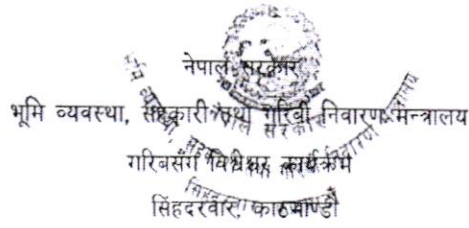 नेपाल सरकार
भूमि व्यवस्था, सहकारी तथा गरिबी निवारण मन्त्रालय
गरिबसंग विश्वेश्वर कार्यक्रम
सिंहदरवार, काठमाण्डौ